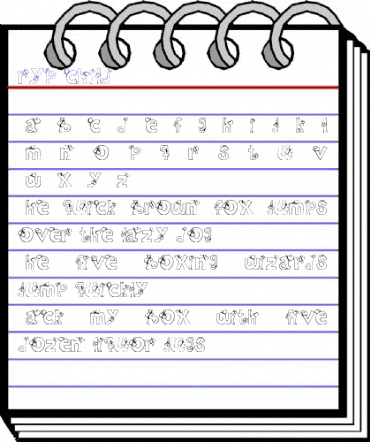 child
a b c d e f g h i j k l
m n o p q r s t u v
w x y z
he quick brown fox jumps
over the lazy dog
he five boxing wizards
jump quickly
ack my box with five
dozen liquor jugs